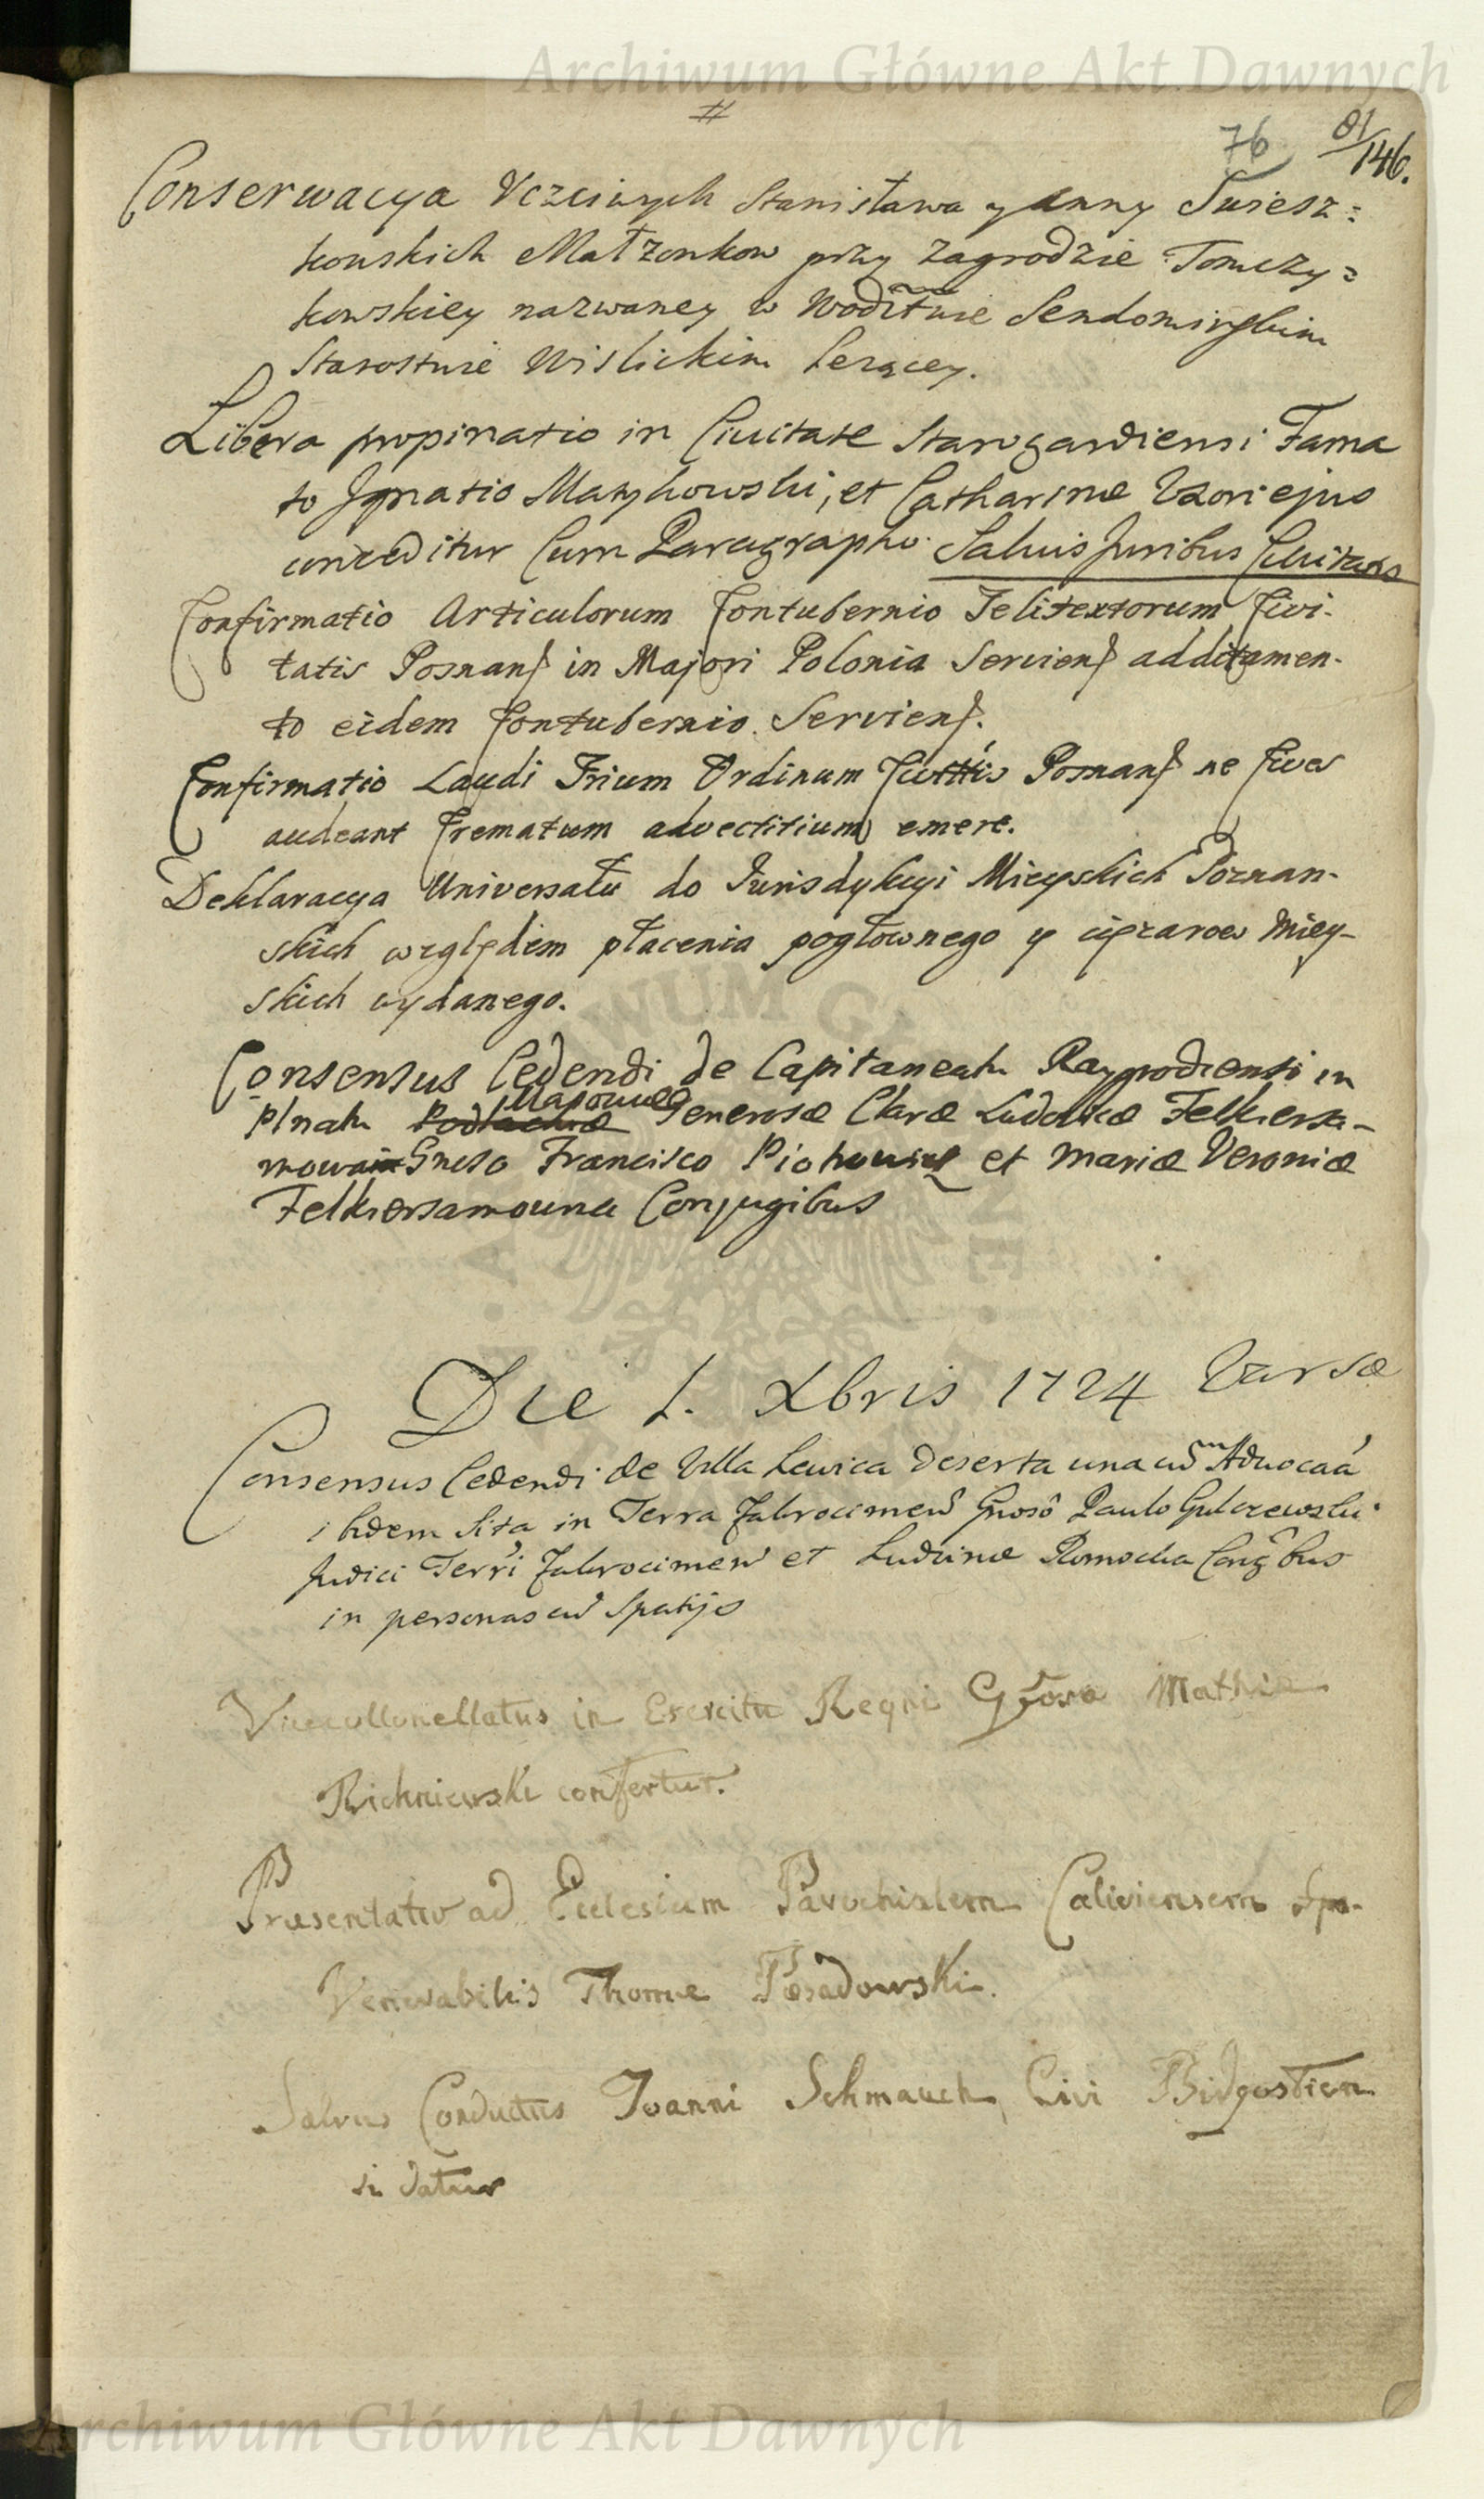 Archiwum Główne Akt Dawnych
#
76 81/146.
Conserwacya Uczciwych Stanisława y Anny Swiesz=
kowskich Małżonkow przy Zagrodzie Tomczy=
kowskiey nazwaney w Wodztwie Sendomirskim
Starostwie Wislickim Leżącey.
Libera propinatio in Civitate Starogardiensi Fama
to Ignatio Matyhowski, et Catharinæ Uxori ejus
conceditur Cum Paragrapho. Salvis Juribus Civitatis
Confirmatio Articulorum Contubernio Telitextorum Civi-
tatis Posnans in Majori Polonia Serviens additamen-
to eidem Contubernio Serviens.
Confirmatio Laudi Trium Ordinum Civittis Posnans ne Cives
audeant Crematum advectitium emere.
Deklaracya Uniwersału do Jurisdykcyi Mieyskich Poznan-
skich względem płacenia pogłownego y ciężarow Miey-
skich wydanego.
Consensus Cedendi de Capitaneatu Raygrodiensi in
Plnatu Podlachiæ Mazoviæ Generosæ Claræ Ludovicæ Felkierza-
mowna Gneso Francisco et Mariæ Veroniæ
Felkiersamowna Conjugibus
Die 1. Xbris 1724 Varsæ
Consensus Cedendi de Villa Lewica Deserta una cū Advocaa
ibidem Sita in Terra Zakrocimen Gnoso Paulo Gulczewski
Judici Terri Zakrocimen et Ludvinæ Romocka Congbus
in personas cū Spatijs
Vicecollonellatus in Exercitu Regni Gnoso Mathiæ
Richniewski confertur.
Præsentatio ad Ecclesiam Parochialem Caliviensem
Venerabilis Thomæ Posadowski.
Salvus Conductus Joanni Schmauch, Civi Bidgostien
si datur
Archiwum Główne Akt Dawnych